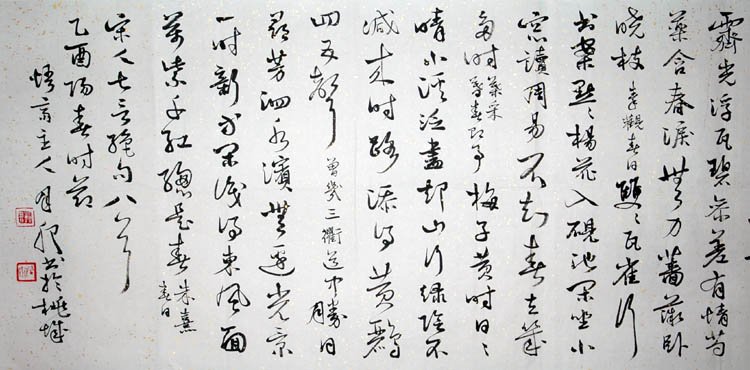 霽光浮瓦碧參差有情芍
藥含春淚無力薔薇卧
曉枝秦觀春日雙〻瓦雀行
书案點〻楊花入硯池闲坐小
窓讀周易不知春去幾
多時葉采暮春即事梅子黄時日〻
晴小溪泛盡却山行緑陰不
減来時路添得黄鸝
四五聲曾幾三衢道中勝日
尋芳泗水濱無邊光景
一时新等闲識得東風面
萬紫千红總是春朱熹春日
宋人七言绝句八首
乙酉陽春时節
悟齋主人月书於桃城